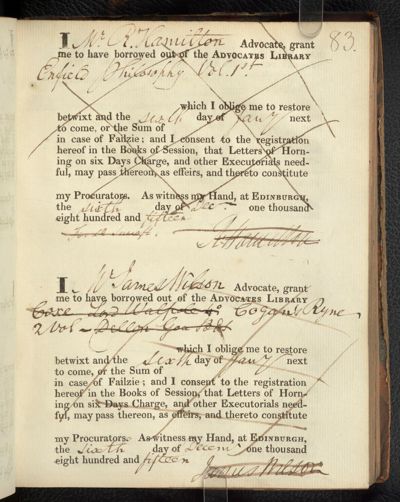 83.
I Mr R. Hamilton Advocate, grant
me to have borrowed out of the ADVOCATES LIBRARY
Enfield Philosophy Vol. 1st
which I oblige me to restore
betwixt and the sixth day of Jany next
to come, or the Sum of
in case of Failzie; and I consent to the registration
hereof in the Books of Session, that Letters of Horn-
ing on six Days Charge, and other Executorials need-
ful, may pass thereon, as effeirs, and thereto constitute
my Procurators. As witness my Hand, at EDINBURGH,
the sixth day of Dec. one thousand
eight hundred and fifteen
R Hamilton
I Mr James Wilson Advocate, grant
me to have borrowed out of the ADVOCATES LIBRARY
Coxe Walpole 4o Cogan's Ryne
2 Vol
which I oblige me to restore
betwixt and the sixth day of Jany next
to come, or the Sum of
in case of Failzie; and I consent to the registration
hereof in the Books of Session, that Letters of Horn-
ing on six Days Charge, and other Executorials need-
ful, may pass thereon, as effeirs, and thereto constitute
my Procurators. As witness my Hand, at EDINBURGH,
the sixth day of Decem one thousand
eight hundred and fifteen
James Wilson